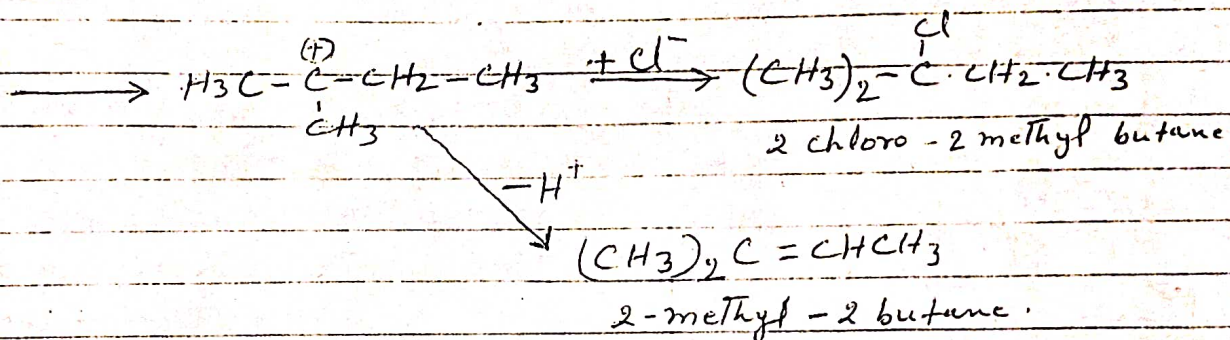 Cl
(+)
⟶ H3C-C-CH2-CH3 + Cl⁻ ⟶ (CH3)2-C·CH2·CH3
CH3
2 chloro-2 methyl butane
-H⁺
(CH3)2C=CHCH3
2-methyl-2 butane.